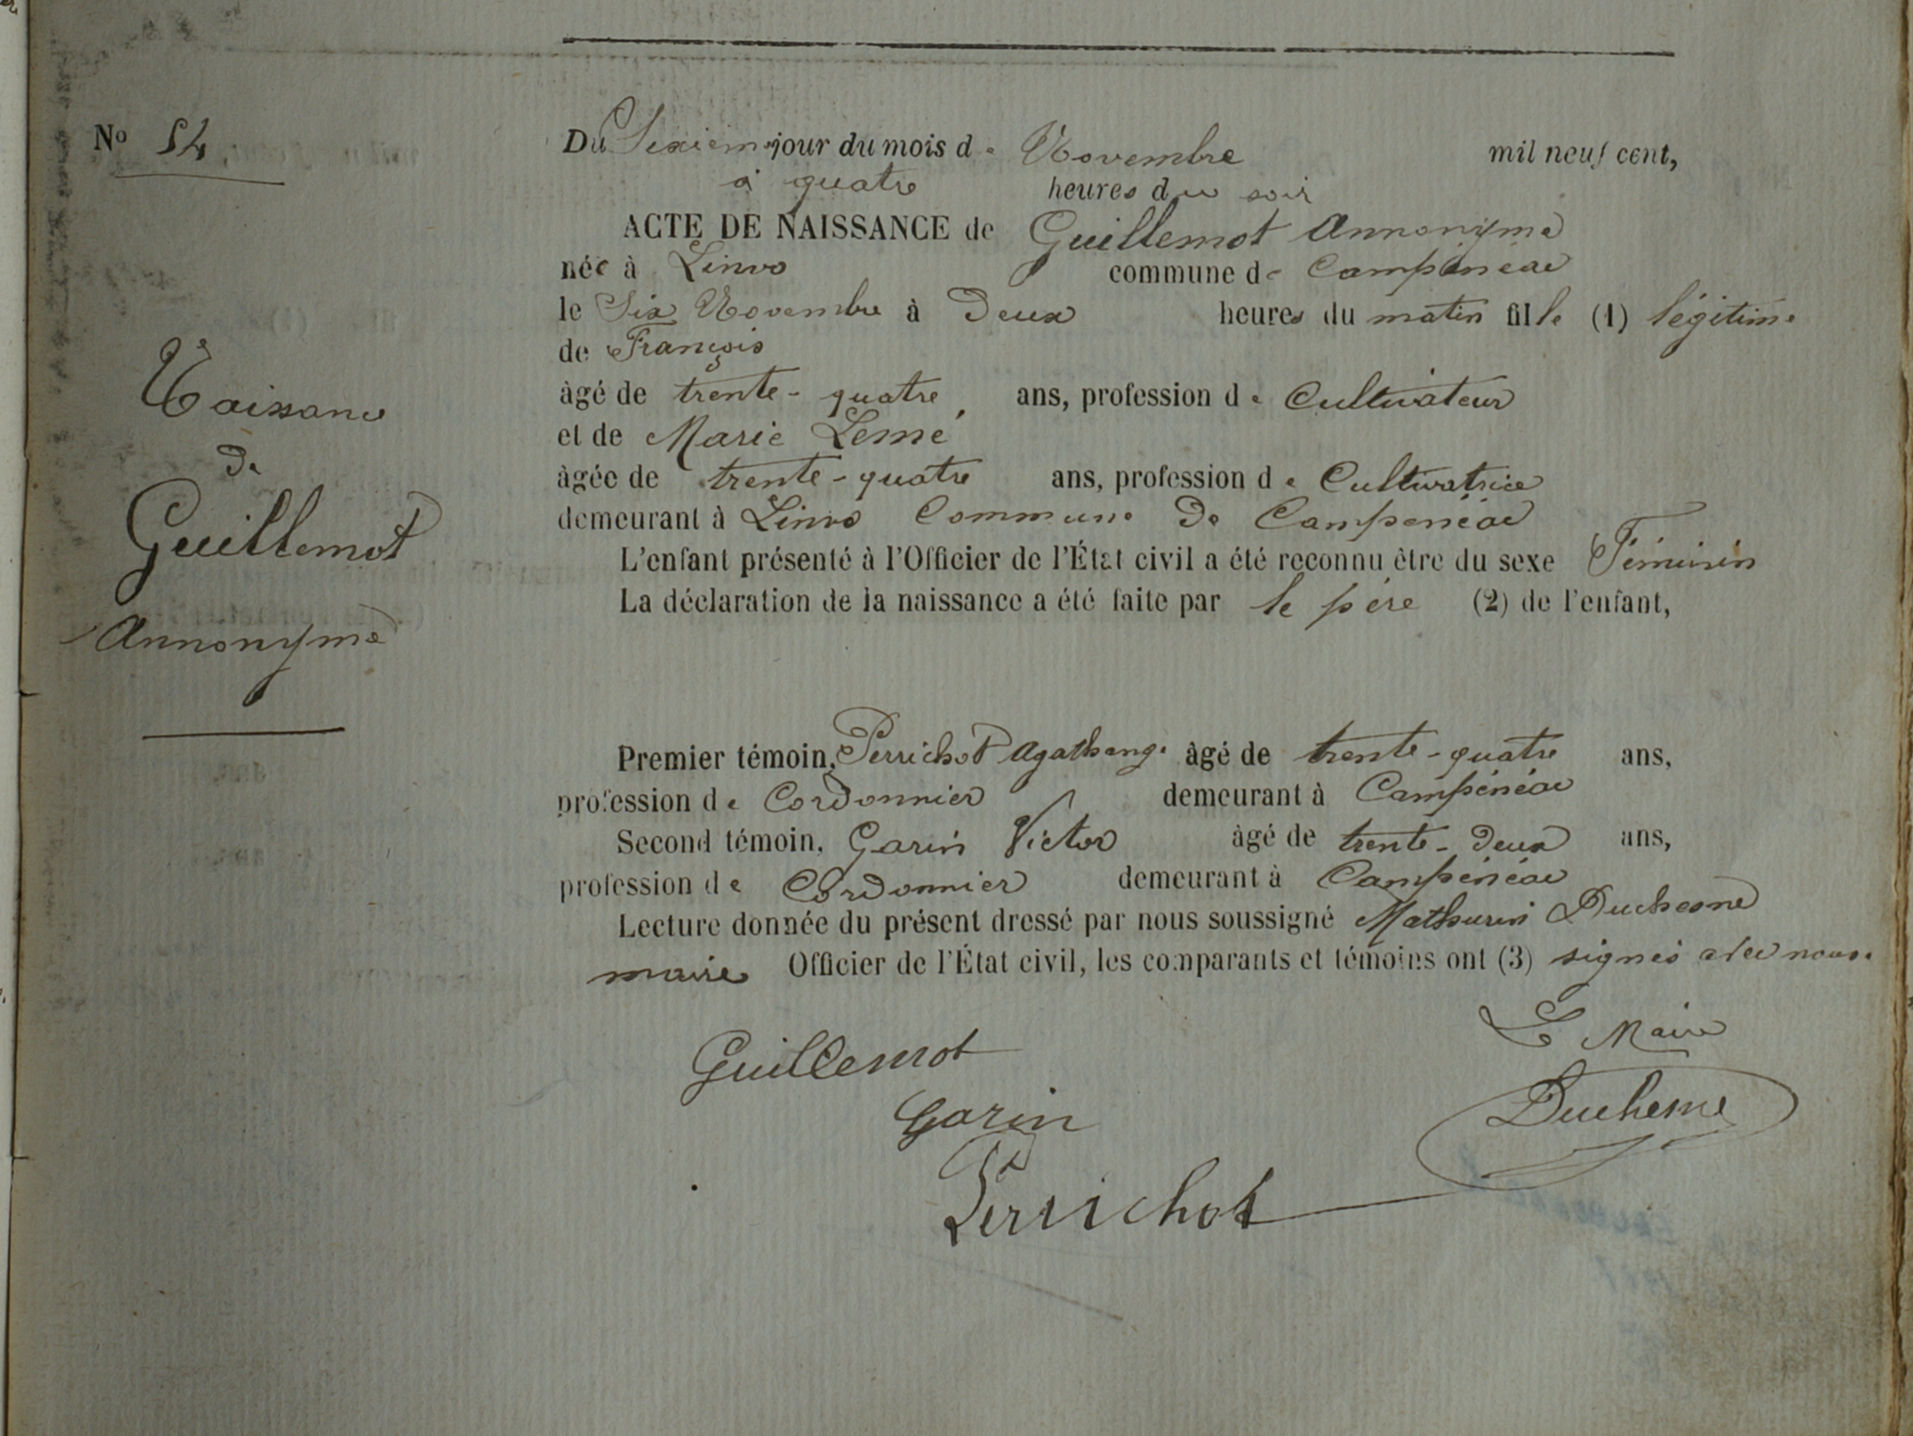 No 54.
Du Sixième jour du mois de Novembre mil neuf cent,
à quatre heures du soir
ACTE DE NAISSANCE de Guillemot Annonyme
née à Linvo commune de Campénéac
le Six Novembre à Deux heures du matin fille (1) légitime
de François
âgé de trente-quatre ans, profession de Cultivateur
et de Marie Lemé
âgée de trente-quatre ans, profession de Cultivatrice
demeurant à Linvo Commune De Campénéac
L'enfant présenté à l'Officier de l'État civil a été reconnu être du sexe Féminin
La déclaration de la naissance a été faite par le père (2) de l'enfant,
Naissance
De
Guillemot
Annonyme
Premier témoin, Perrichot Agathange âgé de trente-quatre ans,
profession de Cordonnier demeurant à Campénéac
Second témoin, Garin Victor âgé de trente-Deux ans,
profession de Cordonnier demeurant à Campénéac
Lecture donnée du présent dressé par nous soussigné Mathurin Duchesne
maire Officier de l'État civil, les comparants et témoins ont (3) signés avec nous.
Le Maire
Guillemot
Duchesne
Garin
Perrichot